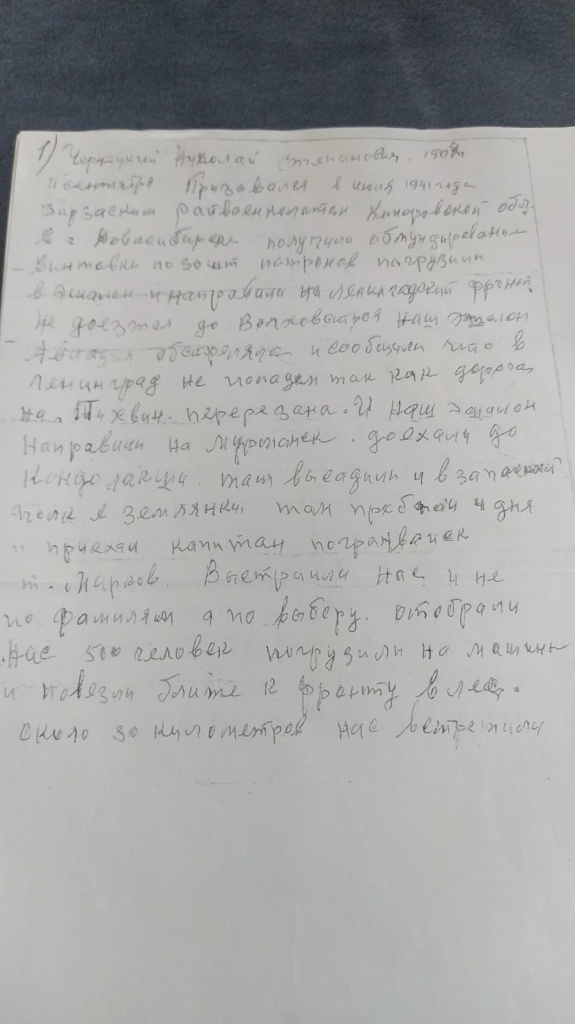 1) Николай Степанович. 190
Призовался в июня 1941 года
Барзаским райвоенкоматам Кемеровской обл.
в г Новосибирске получили обмундирование
Винтовки по 30 шт патронов погрузили
в Эшалон и направили на Ленинградский фронт.
не доезжая до Волховстроя наш Эшалон
Авиация обстреляла и сообщили что в
Ленинград не попадем так как дорога
на Тихвин перерезана. И наш Эшалон
направили на Мурманск. доехали до
Кондолакши. там высадили и в запасной
полк в землянки там пробыли 4 дня
и приехал капитан погранвайск
т. Марков. Выстраили нас и не
по фамилям а по выберу. отобрали
нас 500 человек погрузили на машины
и повезли ближе к фронту в лес.
около 30 километров нас встретили